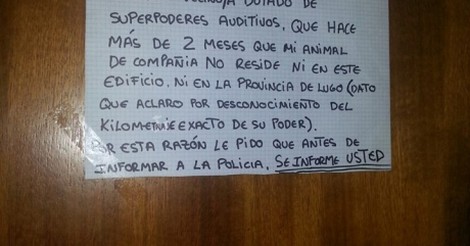 DOTADO DE
SUPERPODERES AUDITIVOS, QUE HACE
MÁS DE 2 MESES QUE MI ANIMAL
DE COMPAÑIA NO RESIDE NI EN ESTE
EDIFICIO. NI EN LA PROVINCIA DE LUGO (DATO
QUE ACLARO POR DESCONOCIMIENTO DEL
KILOMETRAJE EXACTO DE SU PODER).
POR ESTA RAZÓN LE PIDO QUE ANTES DE
INFORMAR A LA POLICIA, SE INFORME USTED